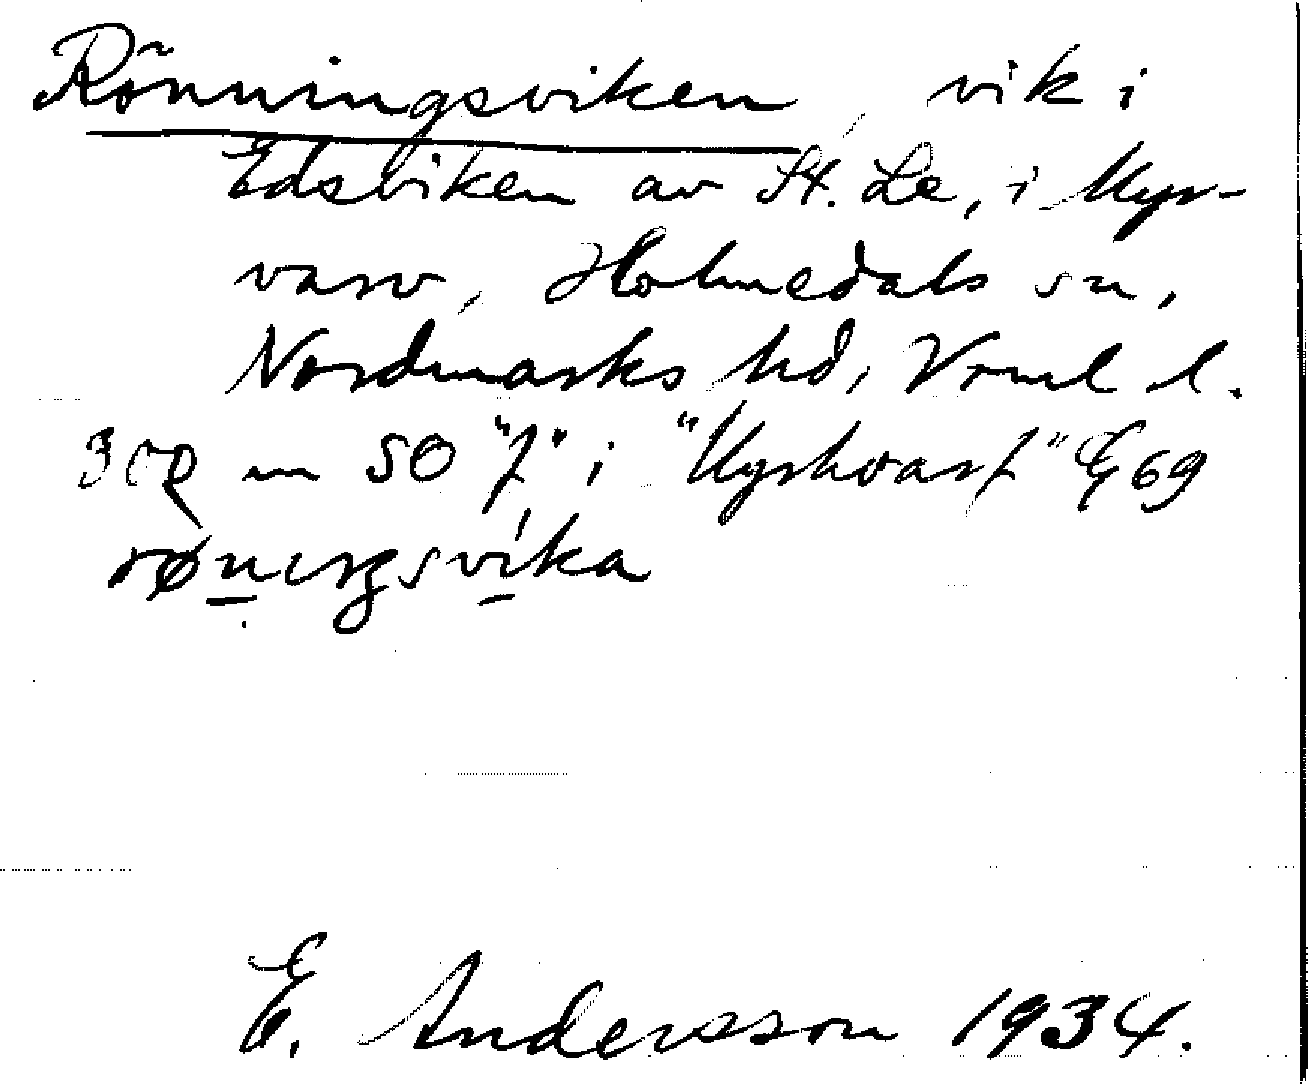 Rönningsviken, vik i
Edsviken av St. Le, i Myr-
varv, Holmedals sn,
Nordmarks hd, Vrml l.
300 m SO "f" i "Myrhvarf" E 69
rønıŋsvika
E. Andersson 1934.